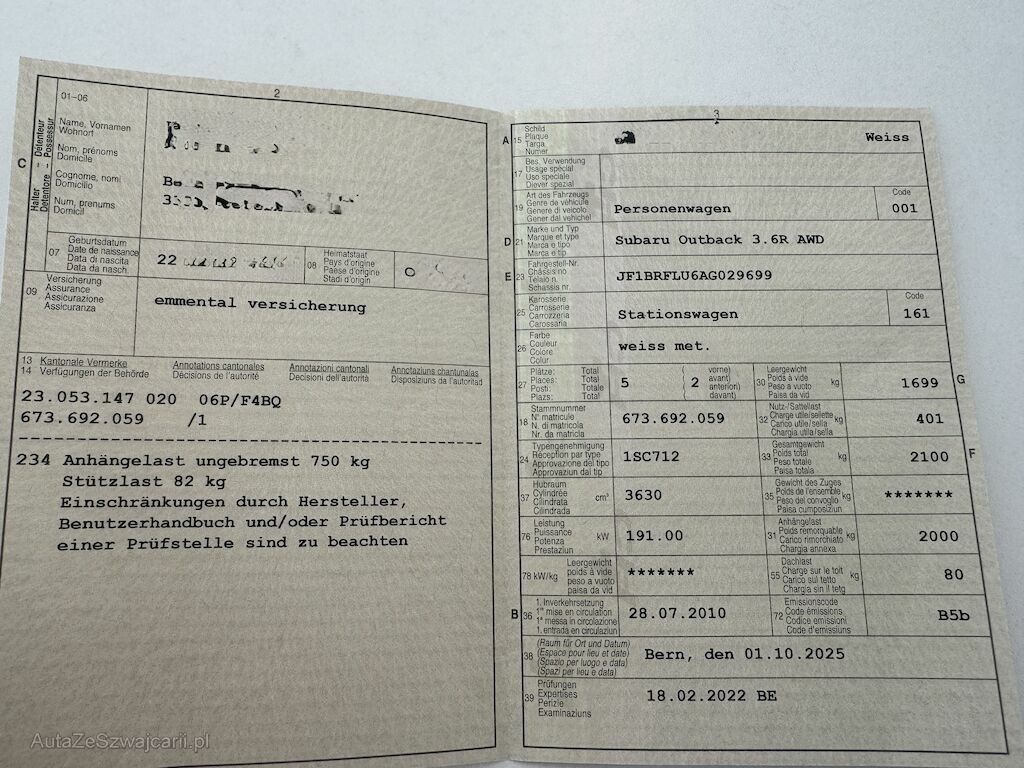 2
01-06
Name, Vornamen
Wohnort
Nom, prénoms
Domicile
Cognome, nomi
Domicilio
Num, prenums
Domicil
C
Halter Détenteur
Detentore Possessur
07
Geburtsdatum
Date de naissance
Data di nascita
Data da nasch.
22
08
Heimatstaat
Pays d'origine
Paese d'origine
Stadi d'origin
09
Versicherung
Assurance
Assicurazione
Assicuranza
emmental versicherung
13 Kantonale Vermerke Annotations cantonales Annotazioni cantonali Annotaziuns chantunalas
14 Verfügungen der Behörde Décisions de l'autorité Decisioni dell'autorità Disposiziuns da l'autoritad
23.053.147 020 06P/F4BQ
673.692.059 /1
234 Anhängelast ungebremst 750 kg
Stützlast 82 kg
Einschränkungen durch Hersteller,
Benutzerhandbuch und/oder Prüfbericht
einer Prüfstelle sind zu beachten
AutaZeSzwajcarii.pl
3
A 15
Schild
Plaque
Targa
Numer
Weiss
17
Bes. Verwendung
Usage spécial
Uso speciale
Diever spezial
19
Art des Fahrzeugs
Genre de véhicule
Genere di veicolo
Gener dal vehichel
Personenwagen
Code
001
D 21
Marke und Typ
Marque et type
Marca e tipo
Marca e tip
Subaru Outback 3.6R AWD
E 23
Fahrgestell-Nr.
Châssis no
Telaio n.
Schassis nr.
JF1BRFLU6AG029699
25
Karosserie
Carrosserie
Carrozzeria
Carossaria
Stationswagen
Code
161
26
Farbe
Couleur
Colore
Colur
weiss met.
27
Plätze: Total
Places: Total
Posti: Totale
Plazs: Total
5
( 2
vorne)
avant)
anteriori)
davant)
30
Leergewicht
Poids à vide
Peso a vuoto
Paisa da vid
kg
1699
G
18
Stammnummer
N° matricule
N. di matricola
Nr. da matricla
673.692.059
32
Nutz-/Sattellast
Charge utile/sellette
Carico utile/sella
Chargia utila/sella
kg
401
24
Typengenehmigung
Réception par type
Approvazione del tipo
Approvaziun dal tip
1SC712
33
Gesamtgewicht
Poids total
Peso totale
Paisa totala
kg
2100
F
37
Hubraum
Cylindrée
Cilindrata
Cilindrada
cm³
3630
35
Gewicht des Zuges
Poids de l'ensemble
Peso del convoglio
Paisa cumposiziun
kg
*******
76
Leistung
Puissance
Potenza
Prestaziun
kW
191.00
31
Anhängelast
Poids remorquable
Carico rimorchiato
Chargia annexa
kg
2000
78 kW/kg
Leergewicht
poids à vide
peso a vuoto
paisa da vid
*******
55
Dachlast
Charge sur le toit
Carico sul tetto
Chargia sin il tetg
kg
80
B 36
1. Inverkehrsetzung
1re mise en circulation
1a messa in circolazione
1. entrada en circulaziun
28.07.2010
72
Emissionscode
Code émissions
Codice emissioni
Code d'emissiuns
B5b
38
(Raum für Ort und Datum)
(Espace pour lieu et date)
(Spazio per luogo e data)
(Spazi per lieu e data)
Bern, den 01.10.2025
39
Prüfungen
Expertises
Perizie
Examinaziuns
18.02.2022 BE